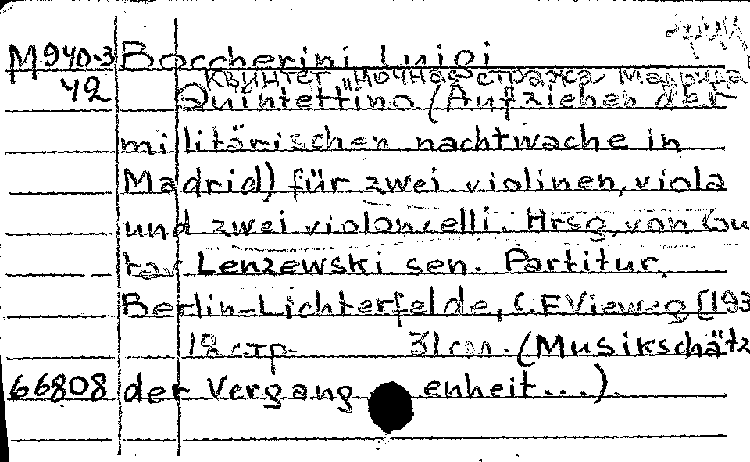 M940-3 Boccherini Luigi
Квинтет „Ночная стража Мадрида
42 Quintettino (Aufziehen der
militärischen nachtwache in
Madrid) für zwei violinen, viola
und zwei violoncelli. Hrsg. von Gu
tav Lenzewski sen. Partitur.
Berlin-Lichterfelde, C.F. Vieweg [193
18 стр. 31 см. (Musikschätz
66808 der Vergangenheit...)